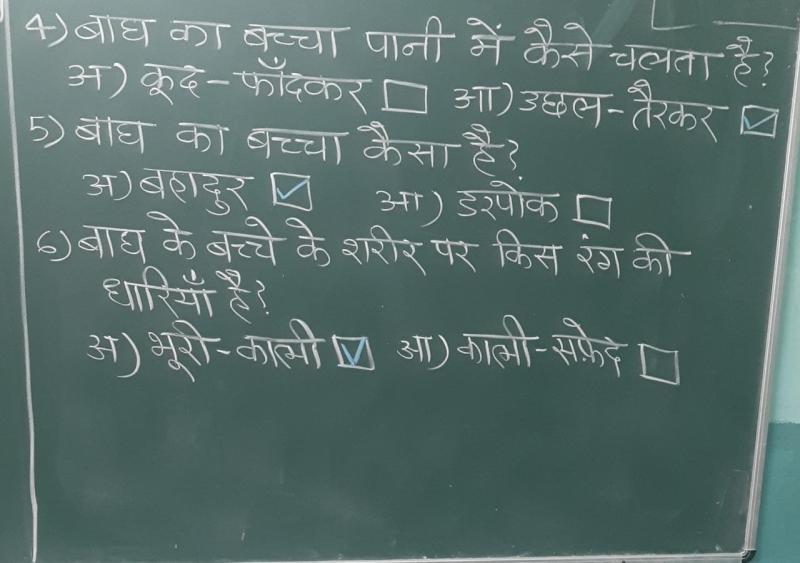 4) बाघ का बच्चा पानी में कैसे चलता है?
अ) कूद-फाँदकर □ आ) उछल-तैरकर ☑
5) बाघ का बच्चा कैसा है?
अ) बहादुर ☑ आ) डरपोक □
6) बाघ के बच्चे के शरीर पर किस रंग की
धारियाँ है?
अ) भूरी-काली ☑ आ) काली-सफ़ेद □